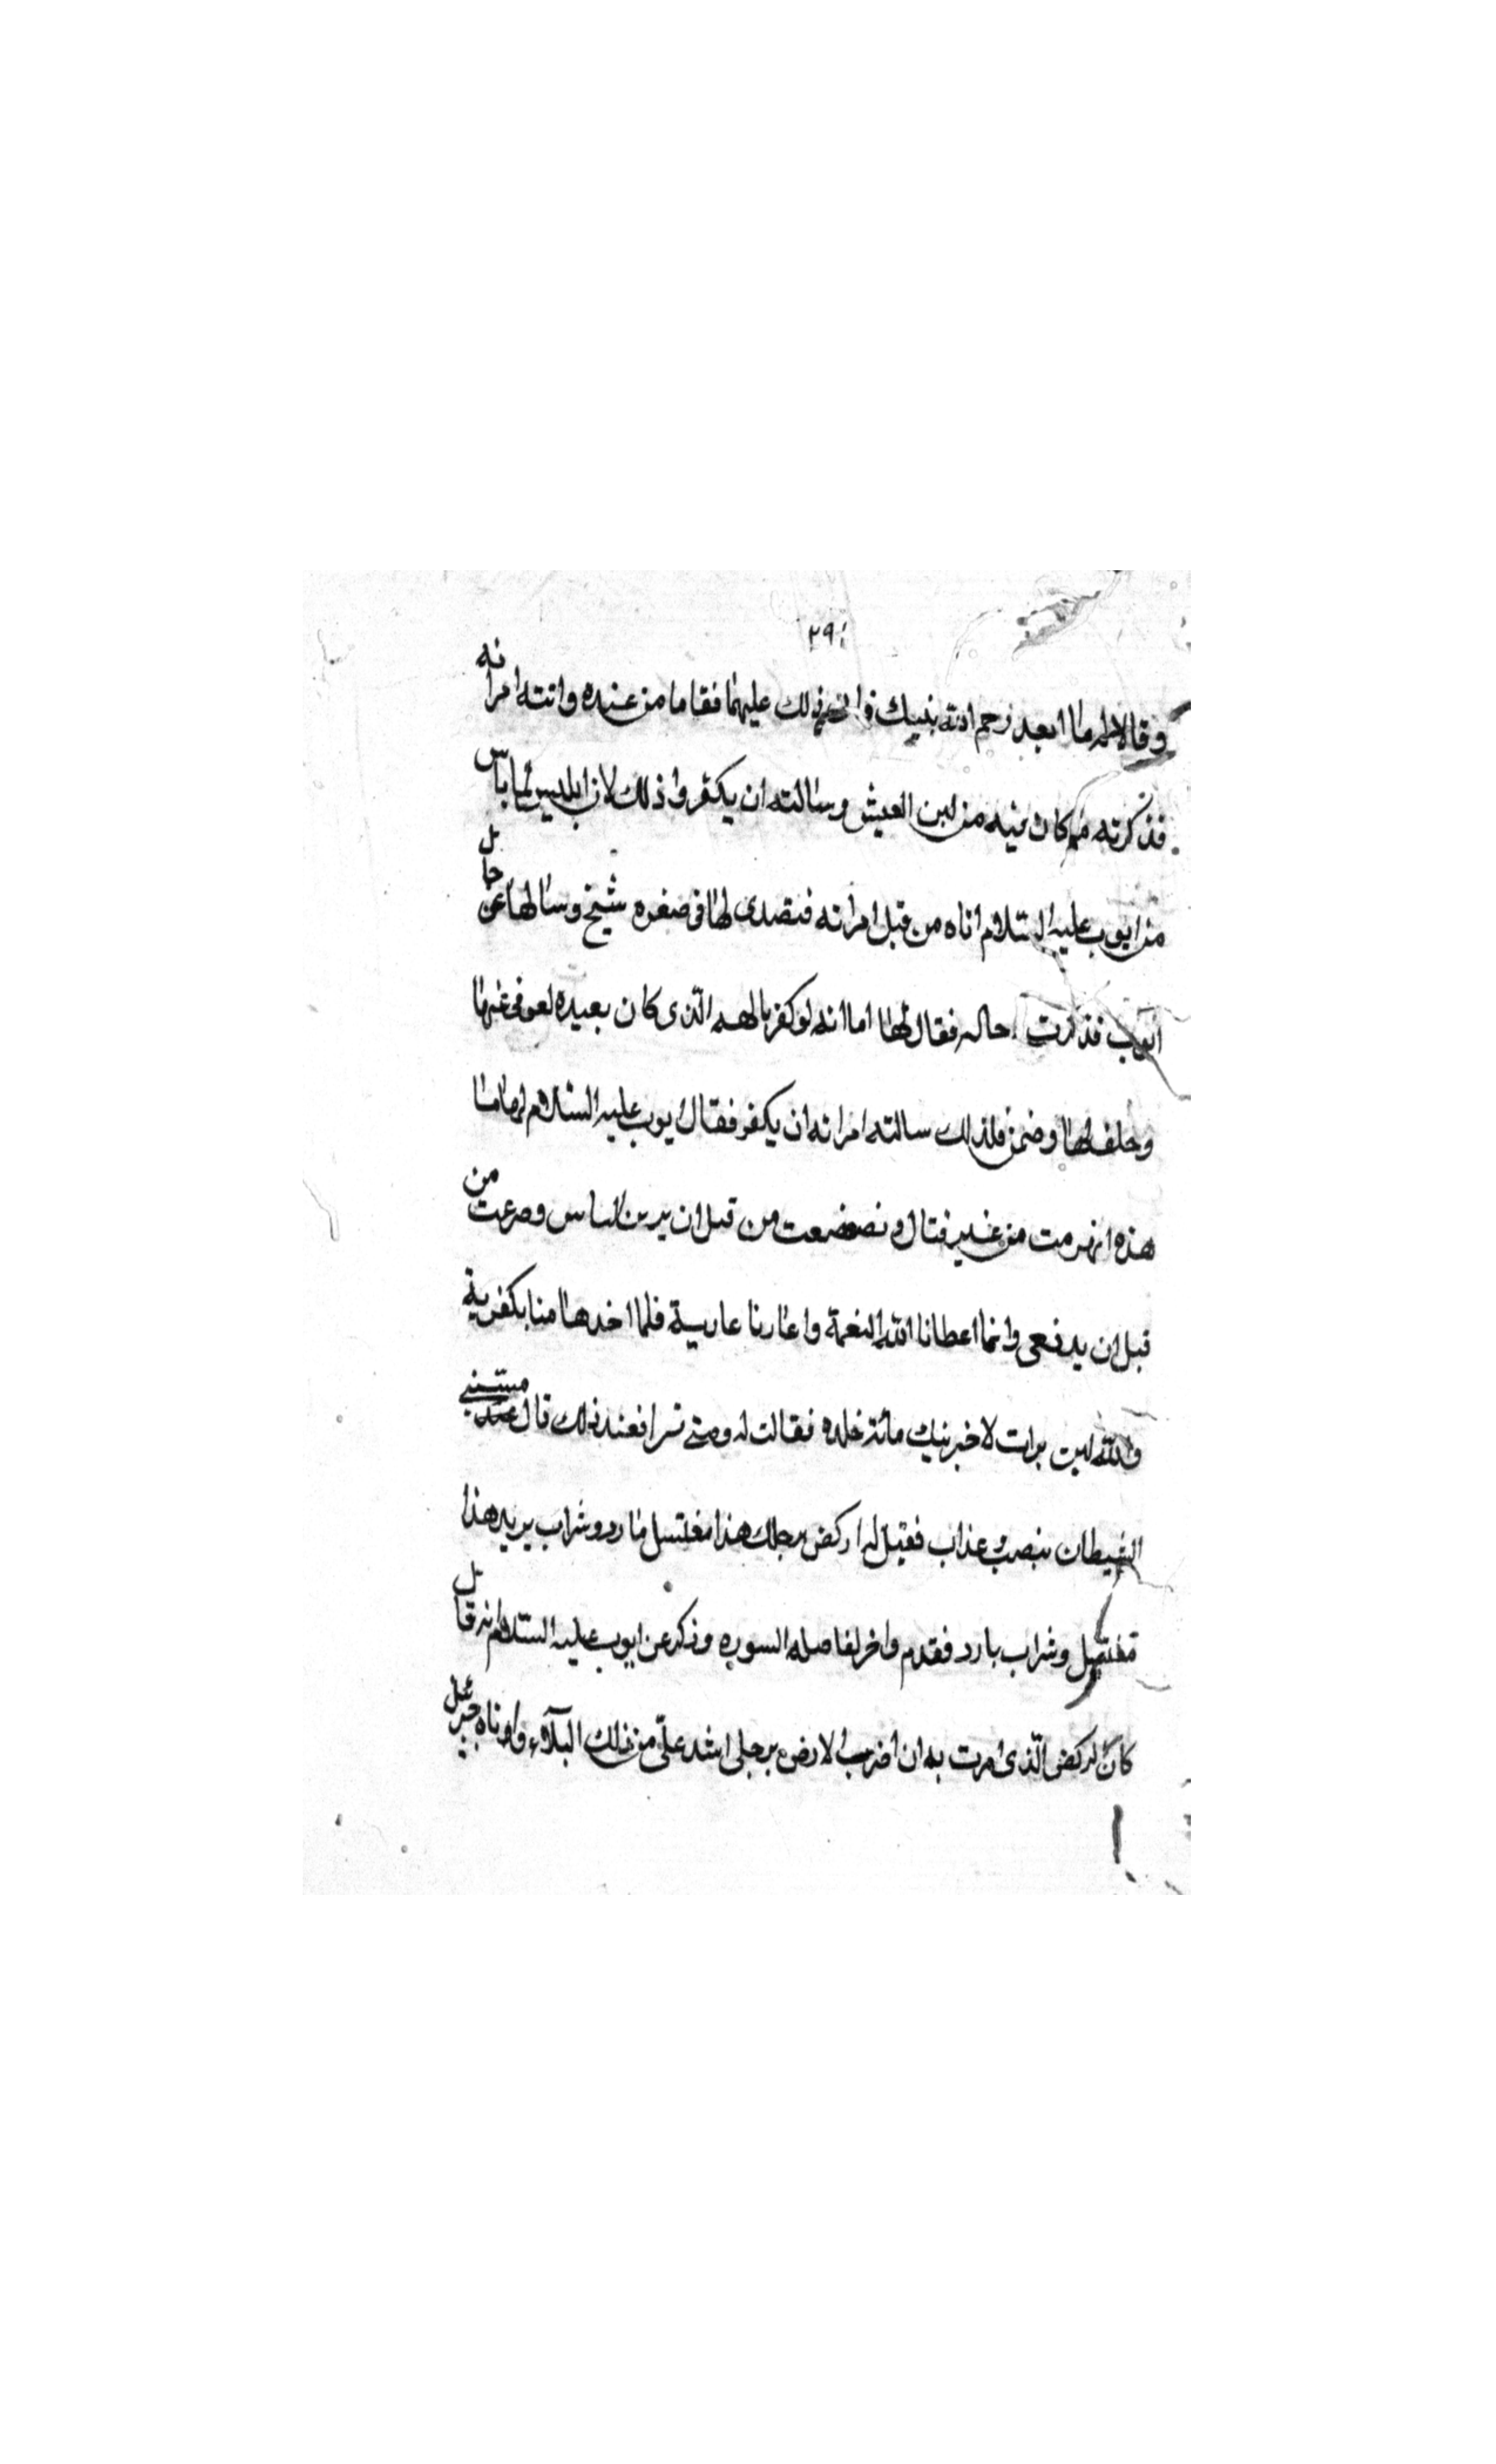 ٢٩٤
وقالا له ما ابعد رحم الله بنيك فوا ذلك عليهما فقاما من عنده واتته امراته
فذكرته مما كان فيه من لين العيش وسالته ان يكفر واذلك لان ابليس لما باس
من ايوب عليه السلام اتاه من قبل امراته فتصدى لها فى صغره شيخ وسالها عن حال
ايوب فذكرت حاله فقال لها اما انه لو كفر بالهه الذى كان بعيده لعوفى عنها
وحلف لها وضمن فلذلك سالته امراته ان يكفر فقال ايوب عليه السلام لها ما
هذه انهزمت من غير قتال و نصضعت من قبل ان يرين الباس وصرعت من
قبل ان يدفعى وانما اعطانا الله النعمة واعارنا عارية فلما اخدها منا بكفر ية
والله لين برات لاخبرنيك مائة خلده فقالت له ومتى تبرا فعند ذلك قال مستنى
الشيطان بنصب عذاب فقيل له اركض برجلك هذا مغتسل بارد وشراب يريد هذا
مغتسل وشراب بارد فقدم واخر لفاصله السوره وذكر عن ايوب عليه السلام انه قال
كان الركض الذى امرت به ان اضرب الارض برجلى اشد على من ذلك البلآء واتاه جبرئيل